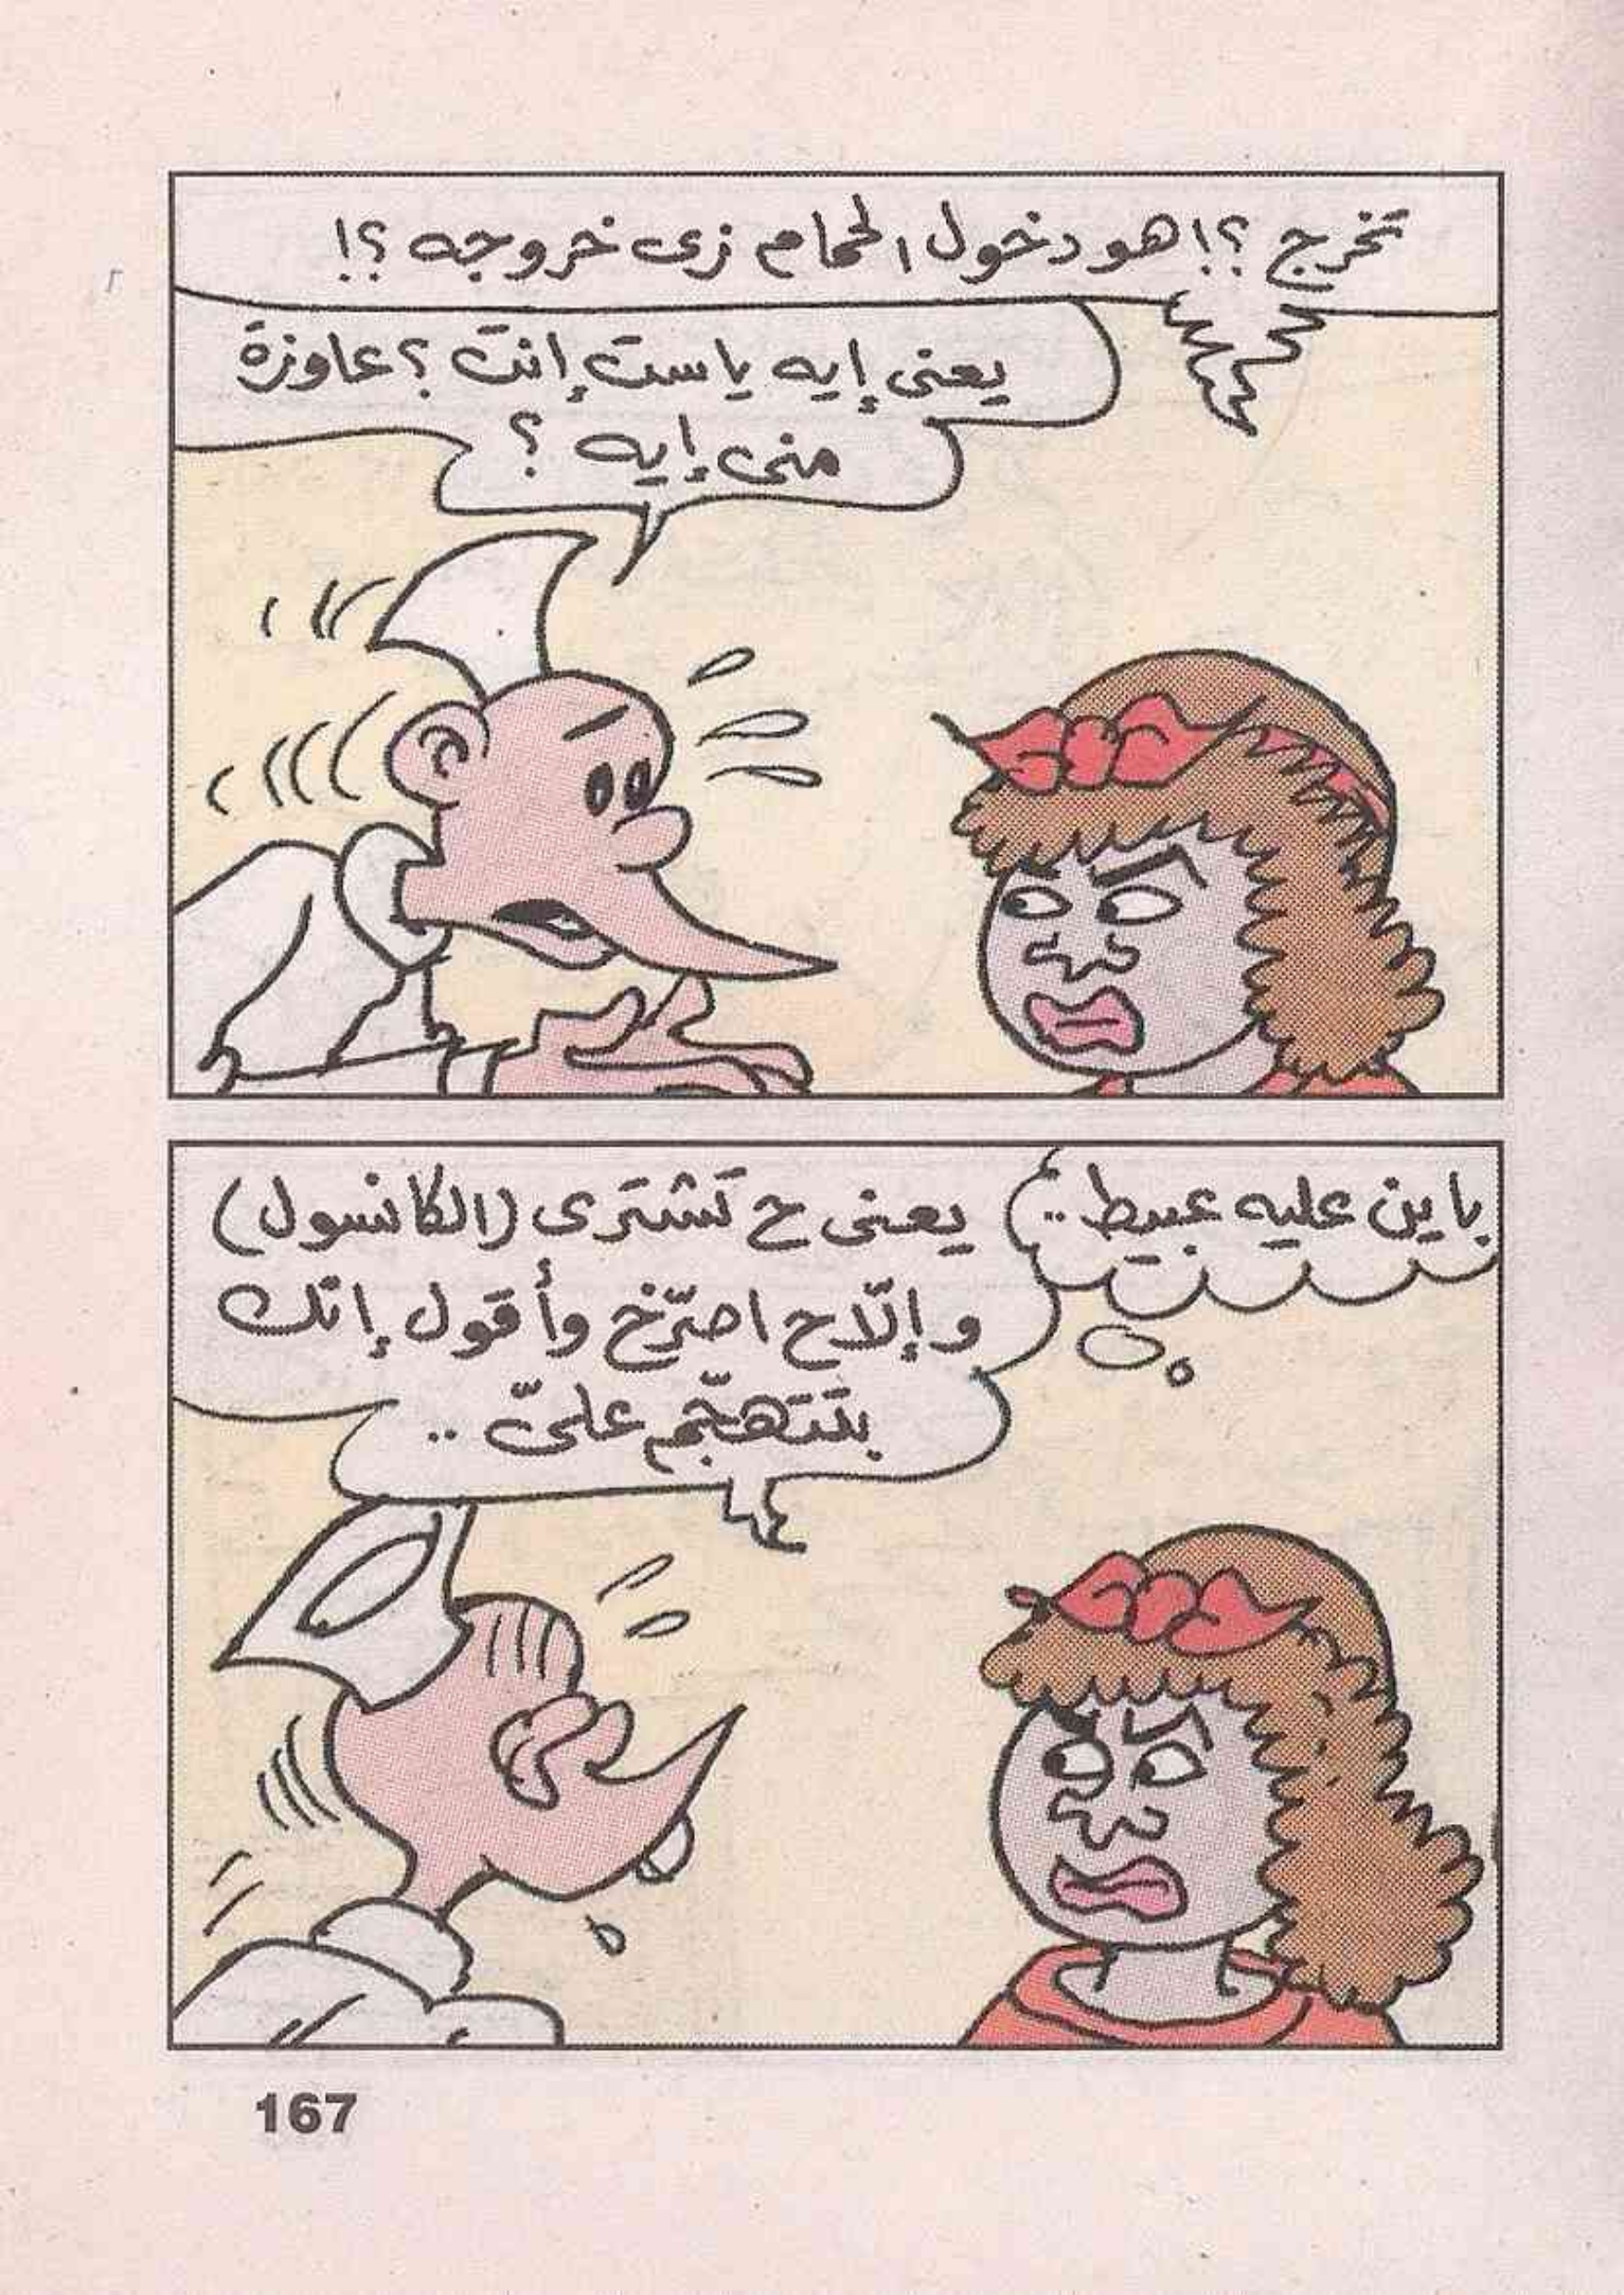 تخرج ؟! هو دخول الحمام زى خروجه ؟!
يعنى إيه ياست إنت ؟ عاوزة
منى إيه ؟
باين عليه عبيط..
يعنى ح تشترى (الكانسول)
وإلّا ح اصرّخ وأقول إنّك
بتتهجّم علىّ ..
167